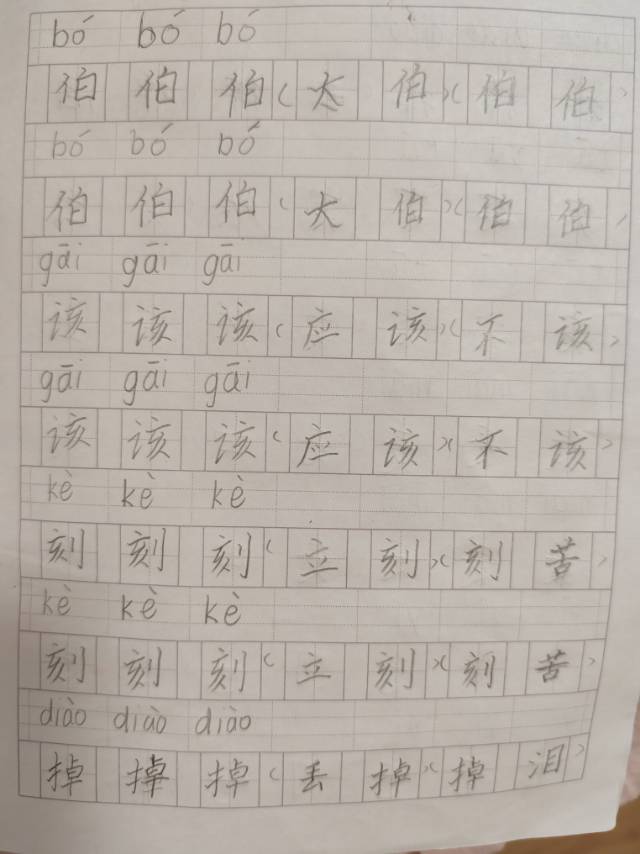 bó bó bó
伯 伯 伯 (大 伯)(伯 伯)
bó bó bó
伯 伯 伯 (大 伯)(伯 伯)
gāi gāi gāi
该 该 该 (应 该)(不 该)
gāi gāi gāi
该 该 该 (应 该)(不 该)
kè kè kè
刻 刻 刻 (立 刻)(刻 苦)
kè kè kè
刻 刻 刻 (立 刻)(刻 苦)
diào diào diào
掉 掉 掉 (丢 掉)(掉 泪)